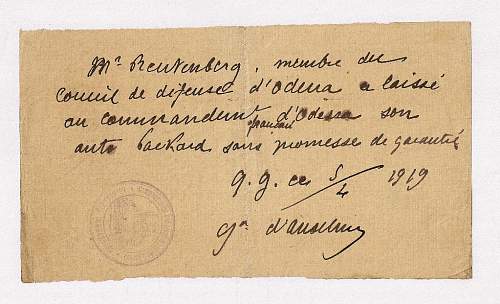 Mr Reutenberg, membre du
Conseil de défense d'Odessa a laissé
au commandement français d'Odessa son
auto Packard sans promesse de garantie
q.g. ce 5/4 1919
Gal d'Anselme